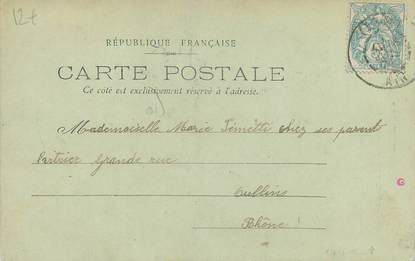 12+
RÉPUBLIQUE FRANÇAISE
CARTE POSTALE
Ce côté est exclusivement réservé à l'adresse.
Mademoiselle Marie chez ses parent
Grande rue
Oullins
Rhône